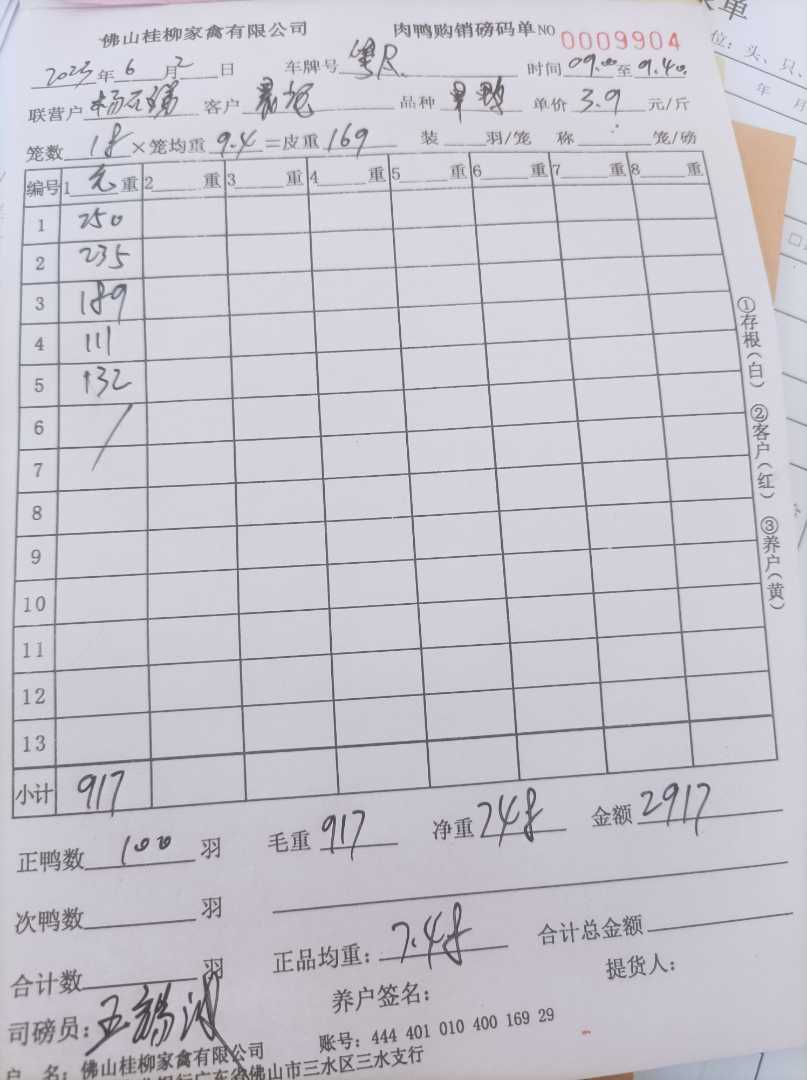 佛山桂柳家禽有限公司 肉鸭购销磅码单 NO 0009904
2023年6月2日 车牌号 粤R. 时间 09.00至9.40
联营户 杨 客户 品种 单价 3.9 元/斤
笼数 18 ×笼均重 9.4 =皮重 169 装 羽/笼 称 笼/磅
编号 1 毛 重 2 重 3 重 4 重 5 重 6 重 7 重 8 重
1 250
2 235
3 189
4 111
5 132
6
7
8
9
10
11
12
13
小计 917
①存根(白) ②客户(红) ③养户(黄)
正鸭数 100 羽 毛重 917 净重 748 金额 2917
次鸭数 羽
合计数 羽 正品均重: 7.48 合计总金额
司磅员: 王锡 养户签名: 提货人:
户 名: 佛山桂柳家禽有限公司 账号: 444 401 010 400 169 29
银行广东省佛山市三水区三水支行
单
位: 头、只、
年 月